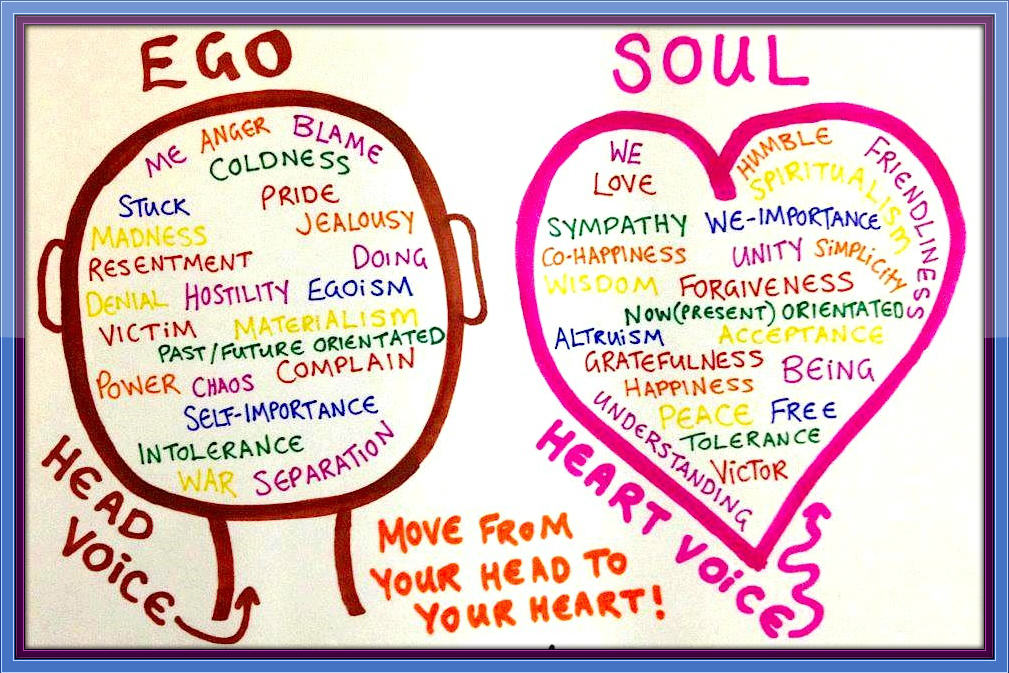 EGO
ME ANGER BLAME
COLDNESS
STUCK PRIDE
MADNESS JEALOUSY
RESENTMENT DOING
DENIAL HOSTILITY EGOISM
VICTIM MATERIALISM
PAST/FUTURE ORIENTATED
POWER CHAOS COMPLAIN
SELF-IMPORTANCE
INTOLERANCE
WAR SEPARATION
HEAD
VOICE
SOUL
WE HUMBLE FRIENDLINESS
LOVE SPIRITUALISM
SYMPATHY WE-IMPORTANCE
CO-HAPPINESS UNITY SIMPLICITY
WISDOM FORGIVENESS
NOW(PRESENT) ORIENTATED
ALTRUISM ACCEPTANCE
GRATEFULNESS BEING
HAPPINESS
PEACE FREE
UNDERSTANDING TOLERANCE
VICTOR
HEART VOICE
MOVE FROM
YOUR HEAD TO
YOUR HEART!